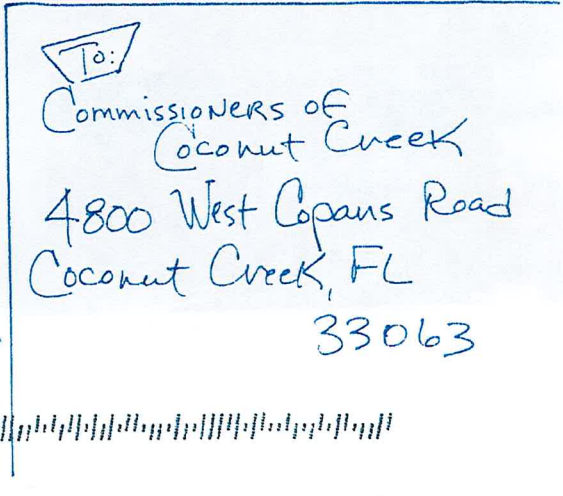 To:
Commissioners of
Coconut Creek
4800 West Copans Road
Coconut Creek, FL
33063